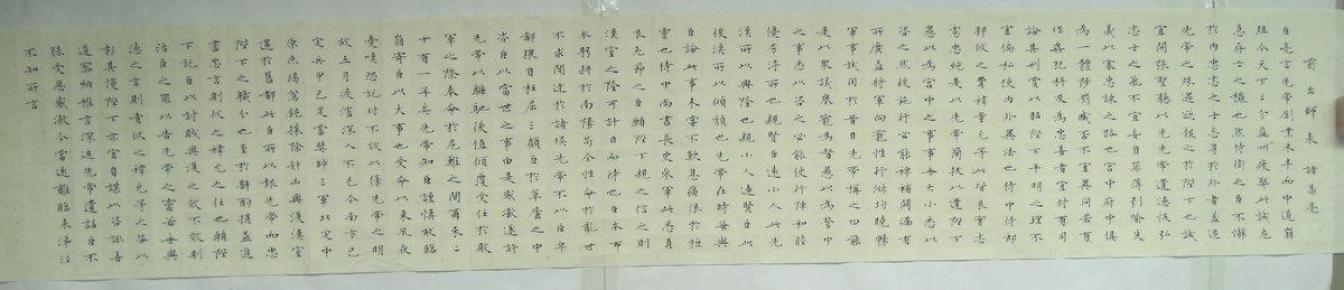 前出師表 諸葛亮
臣亮言先帝創業未半而中道崩
殂今天下三分益州疲弊此誠危
急存亡之秋也然侍衛之臣不懈
於內忠志之士忘身於外者蓋追
先帝之殊遇欲報之於陛下也誠
宜開張聖聽以光先帝遺德恢弘
志士之氣不宜妄自菲薄引喻失
義以塞忠諫之路也宮中府中俱
為一體陟罰臧否不宜異同若有
作姦犯科及為忠善者宜付有司
論其刑賞以昭陛下平明之理不
宜偏私使內外異法也侍中侍郎
郭攸之費禕董允等此皆良實志
慮忠純是以先帝簡拔以遺陛下
愚以為宮中之事事無大小悉以
咨之然後施行必能裨補闕漏有
所廣益將軍向寵性行淑均曉暢
軍事試用於昔日先帝稱之曰能
是以眾議舉寵為督愚以為營中
之事悉以咨之必能使行陣和睦
優劣得所也親賢臣遠小人此先
漢所以興隆也親小人遠賢臣此
後漢所以傾頹也先帝在時每與
臣論此事未嘗不歎息痛恨於桓
靈也侍中尚書長史參軍此悉貞
良死節之臣願陛下親之信之則
漢室之隆可計日而待也臣本布
衣躬耕於南陽苟全性命於亂世
不求聞達於諸侯先帝不以臣卑
鄙猥自枉屈三顧臣於草廬之中
咨臣以當世之事由是感激遂許
先帝以驅馳後值傾覆受任於敗
軍之際奉命於危難之間爾來二
十有一年矣先帝知臣謹慎故臨
崩寄臣以大事也受命以來夙夜
憂嘆恐託付不效以傷先帝之明
故五月渡瀘深入不毛今南方已
定兵甲已足當獎帥三軍北定中
原庶竭駑鈍攘除奸凶興復漢室
還於舊都此臣所以報先帝而忠
陛下之職分也至於斟酌損益進
盡忠言則攸之禕允之任也願陛
下託臣以討賊興復之效不效則
治臣之罪以告先帝之靈若無興
德之言則責攸之禕允等之咎以
彰其慢陛下亦宜自謀以咨諏善
道察納雅言深追先帝遺詔臣不
勝受恩感激今當遠離臨表涕泣
不知所言